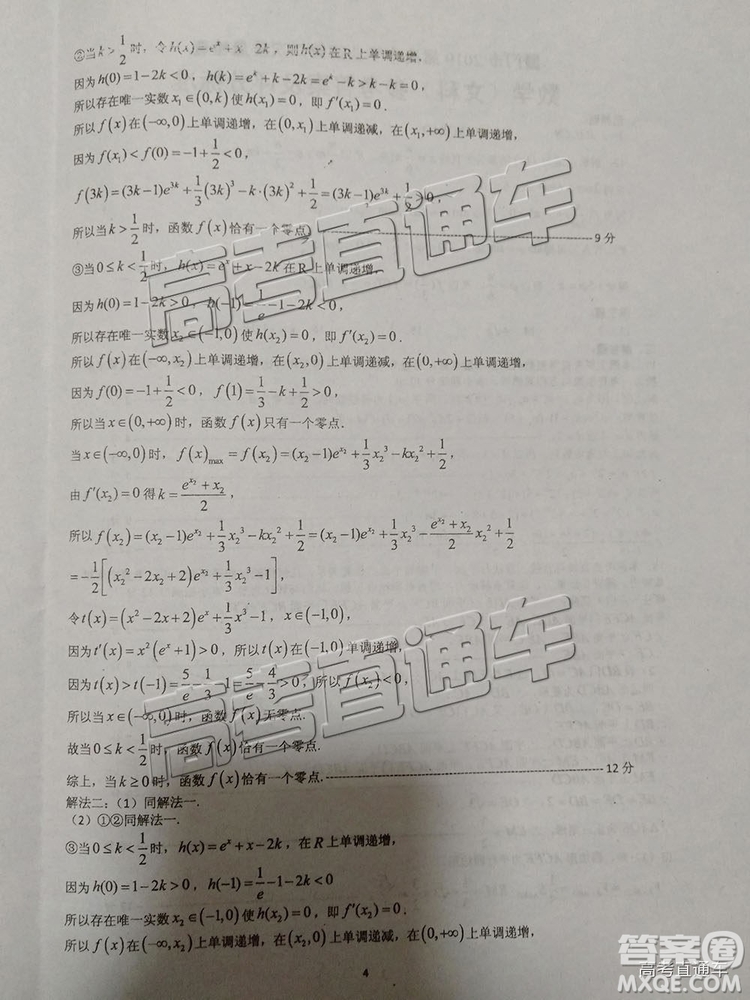 ②当 k > 1/2 时，令 h(x) = e^x + x − 2k，则 h(x) 在 R 上单调递增.
因为 h(0) = 1 − 2k < 0，h(k) = e^k + k − 2k = e^k − k > k − k = 0，
所以存在唯一实数 x₁ ∈ (0, k) 使 h(x₁) = 0，即 f′(x₁) = 0.
所以 f(x) 在 (−∞, 0) 上单调递增，在 (0, x₁) 上单调递减，在 (x₁, +∞) 上单调递增，
因为 f(x₁) < f(0) = −1 + 1/2 < 0，
f(3k) = (3k−1)e^{3k} + 1/3(3k)³ − k·(3k)² + 1/2 = (3k−1)e^{3k} + 1/2 > 0，
所以当 k > 1/2 时，函数 f(x) 恰有一个零点. 9 分
③当 0 ≤ k < 1/2 时，h(x) = e^x + x − 2k 在 R 上单调递增，
因为 h(0) = 1 − 2k > 0，h(−1) = 1/e − 1 − 2k < 0，
所以存在唯一实数 x₂ ∈ (−1, 0) 使 h(x₂) = 0，即 f′(x₂) = 0.
所以 f(x) 在 (−∞, x₂) 上单调递增，在 (x₂, 0) 上单调递减，在 (0, +∞) 上单调递增，
因为 f(0) = −1 + 1/2 < 0，f(1) = 1/3 − k + 1/2 > 0，
所以当 x ∈ (0, +∞) 时，函数 f(x) 只有一个零点.
当 x ∈ (−∞, 0) 时，f(x)max = f(x₂) = (x₂−1)e^{x₂} + 1/3 x₂³ − kx₂² + 1/2，
由 f′(x₂) = 0 得 k = (e^{x₂} + x₂)/2，
所以 f(x₂) = (x₂−1)e^{x₂} + 1/3 x₂³ − kx₂² + 1/2 = (x₂−1)e^{x₂} + 1/3 x₂³ − (e^{x₂} + x₂)/2 x₂² + 1/2
= −1/2[(x₂² − 2x₂ + 2)e^{x₂} + 1/3 x₂³ − 1]，
令 t(x) = (x² − 2x + 2)e^x + 1/3 x³ − 1，x ∈ (−1, 0)，
因为 t′(x) = x²(e^x + 1) > 0，所以 t(x) 在 (−1, 0) 单调递增，
因为 t(x) > t(−1) = 5/e − 1/3 − 1 = 5/e − 4/3 > 0，所以 f(x₂) < 0，
所以当 x ∈ (−∞, 0) 时，函数 f(x) 无零点.
故当 0 ≤ k < 1/2 时，函数 f(x) 恰有一个零点.
综上，当 k ≥ 0 时，函数 f(x) 恰有一个零点. 12 分
解法二：（1）同解法一.
（2）①②同解法一.
③当 0 ≤ k < 1/2 时，h(x) = e^x + x − 2k，在 R 上单调递增，
因为 h(0) = 1 − 2k > 0，h(−1) = 1/e − 1 − 2k < 0
所以存在唯一实数 x₂ ∈ (−1, 0) 使 h(x₂) = 0，即 f′(x₂) = 0.
所以 f(x) 在 (−∞, x₂) 上单调递增，在 (x₂, 0) 上单调递减，在 (0, +∞) 上单调递增，
4
高考直通车
高考直通车
答案圈
高考直通车
MXQE.COM